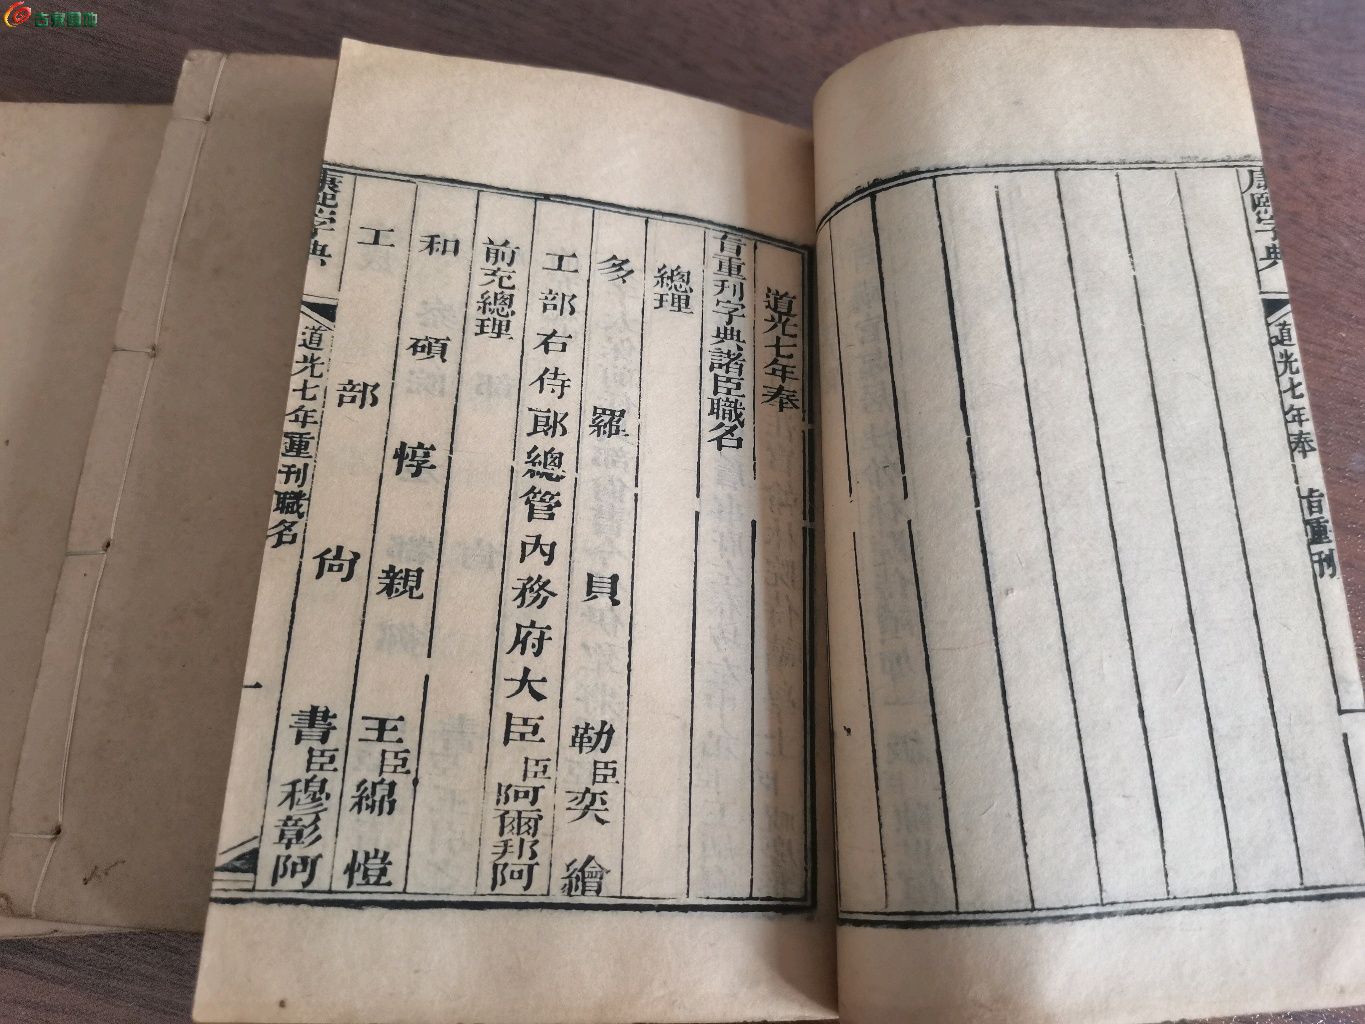 康熙字典 道光七年奉 旨重刊
道光七年奉
旨重刊字典諸臣職名
總理
多羅貝勒臣奕繪
工部右侍郎總管內務府大臣臣阿爾邦阿
前充總理
和碩惇親王臣綿愷
工部尙書臣穆彰阿
康熙字典 道光七年重刊職名 一